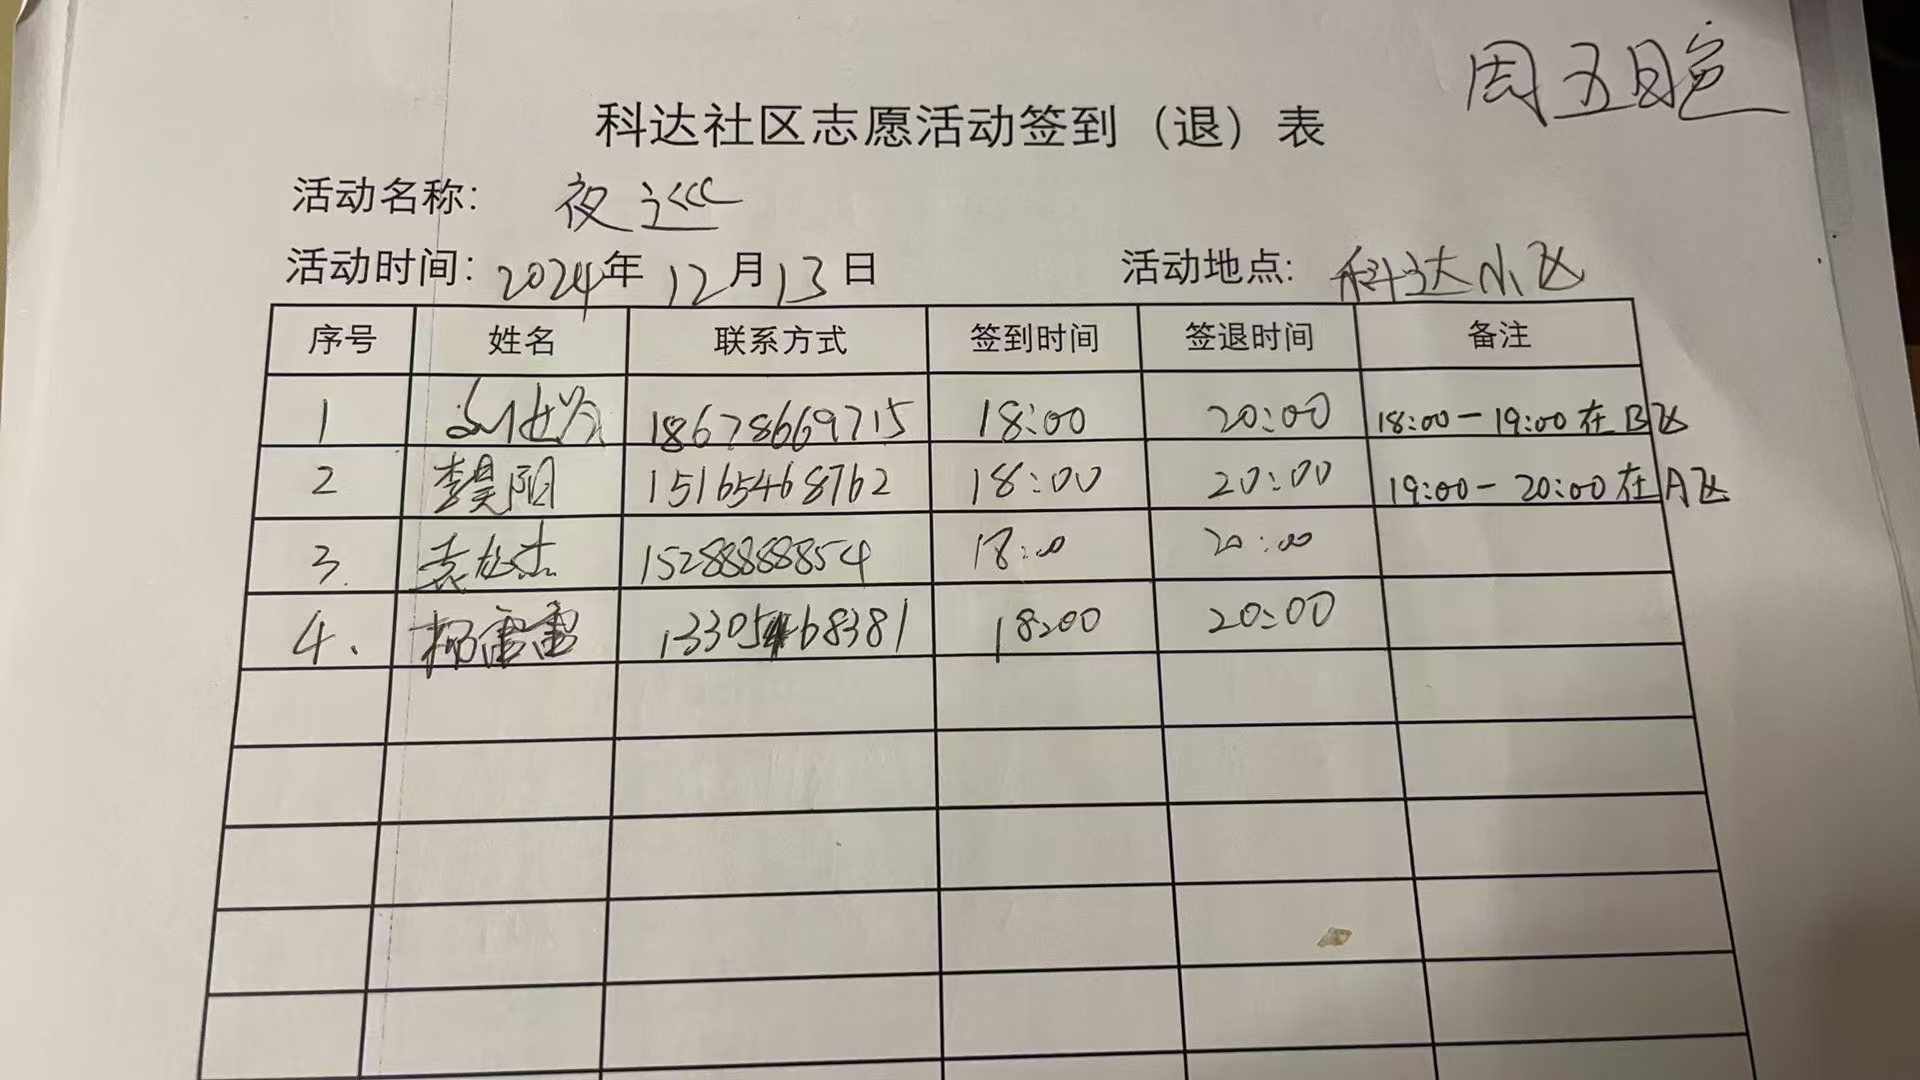 周五晚
科达社区志愿活动签到（退）表
活动名称： 夜巡
活动时间：2024年12月13日 活动地点: 科达小区
序号 姓名 联系方式 签到时间 签退时间 备注
1 18678669715 18:00 20:00 18:00-19:00在B区
2 李昊阳 15165468762 18:00 20:00 19:00-20:00在A区
3. 袁龙杰 15288888854 18:00 20:00
4. 杨雷雷 13305468381 18:00 20:00